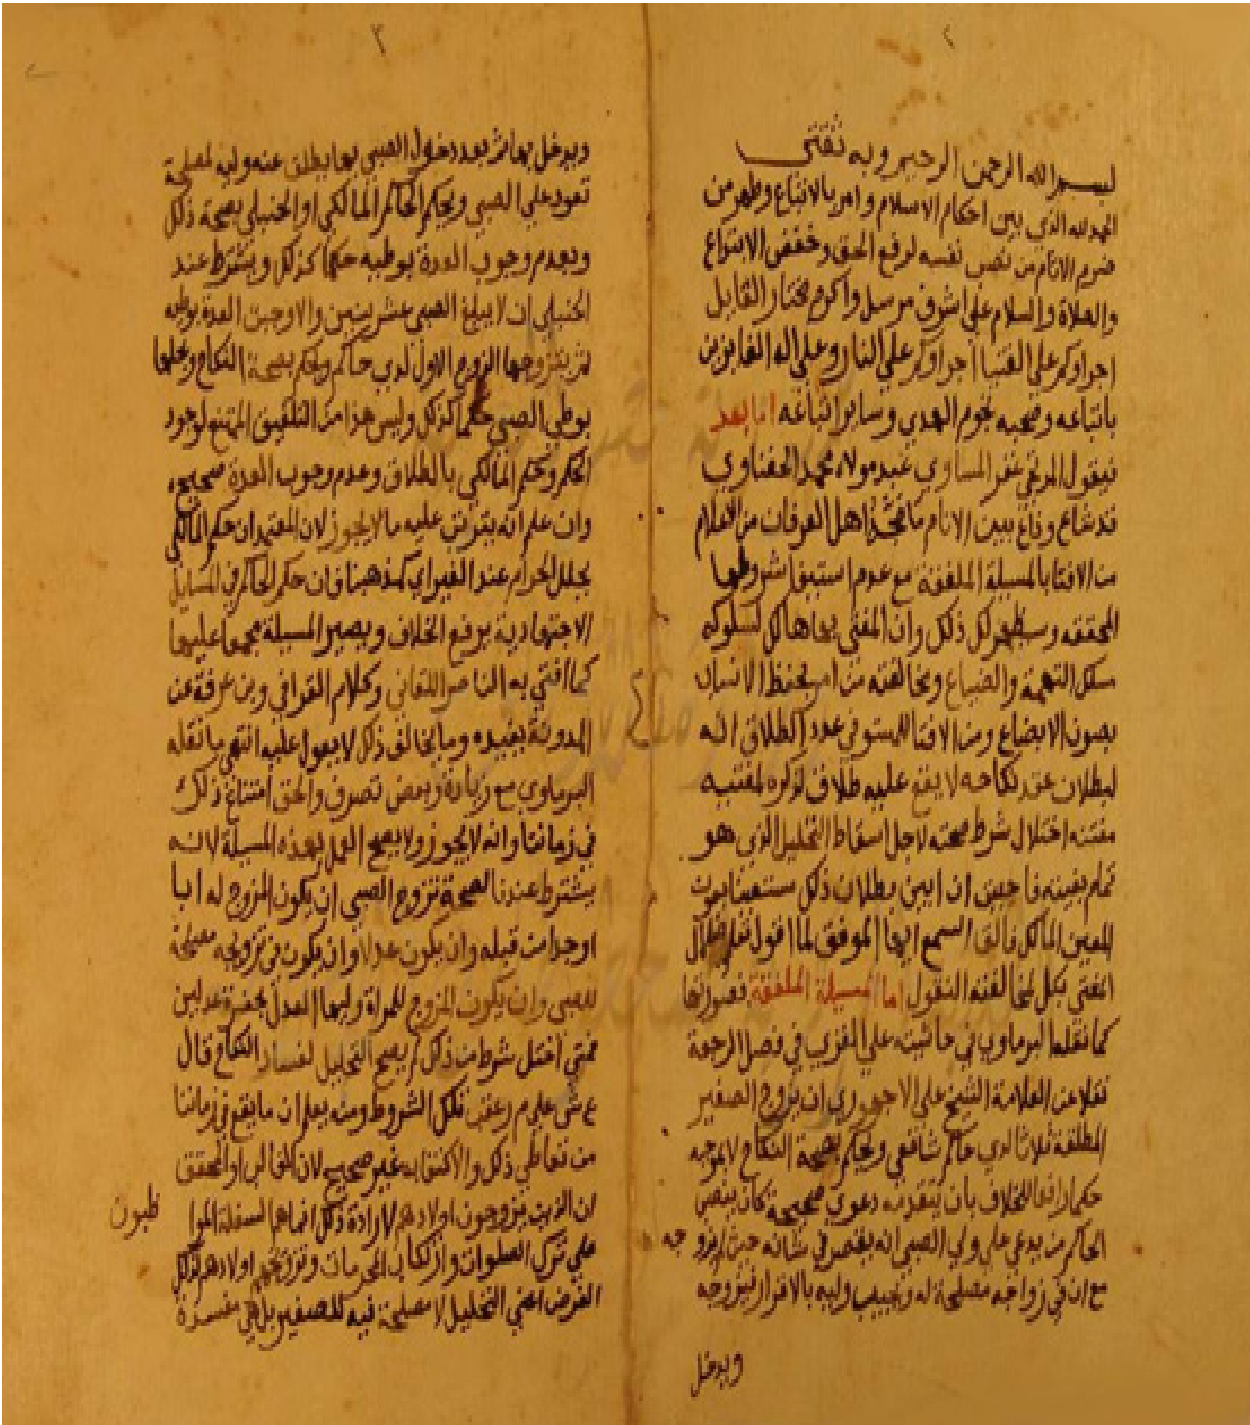 ٢
بسم الله الرحمن الرحيم وبه ثقتي
الحمد لله الذي بين احكام الاسلام وامر بالاتباع وطهر من
الانام من نفسه لرفع الحق وخفض الابتداع
والصلاة والسلام علي اشرف مرسل واكرم مختار القايل
اجراوكم علي الفتيا اجراوكم علي النار وعلي اله الفايزين
باتباعه وصحبه نجوم الهدي وساير اتباعه اما بعد
فيقول المرتجي غفر المساوي عبد مولاه محمد الحفناوي
قد شاع وذاع بين الانام اهل العرفان من الاعلام
من الافتا بالمسيلة الملفقة مع عدم شروطها
المحققه وسيظهر لك ذلك وان المفتي بها هالك لسلوكه
التهمة والضياع ومخالفته من امر بحفظ الانسان
بصون الابضاع ومن الافتا لمستوفي عدد الطلاق انه
لبطلان عقد نكاحه لا يقع عليه طلاق لذكره لمفتيه
اختلال شرط صحته لاجل اسقاط التحليل الذي هو
فاحببت ان ابين بطلان ذلك مستعينا بعون
المعين المالك اسمع ايها الموفق لما اقول
المفتي بكل لمخالفته النقول اما المسيلة الملفقة فصورتها
كما نقله البرماوي في حاشيته علي الغزي في فصل الرجعة
نقلا عن العلامة الشيخ علي الاجهوري ان يزوج الصغير
المطلقة ثلاثا لدي حاكم شافعي ويحكم بصحة النكاح لا بموجبه
حكما رافعا للخلاف بان يتقدمه دعوي صحيحة كان ينصب
الحاكم من يدعي علي ولي الصبي انه يقصر في شانه حيث لم يزوجه
مع ان في زواجه مصلحة له ويجيب وليه بالاقرار فيزوجه
ويدخل
٣
ويدخل بها ثم بعد دخول الصبي بها يطلق عنه وليه لمصلحة
تعود علي الصبي ويحكم الحاكم المالكي او الحنبلي بصحة ذلك
وبعدم وجوب العدة بوطيه حكما كذلك ويشترط عند
الحنبلي ان لا يبلغ الصبي عشر سنين والا وجبت العدة بوطيه
ثم يتزوجها الزوج الاول لدي حاكم ويحكم بصحة النكاح وبحلها
بوطي الصبي حكما كذلك وليس هذا من التلفيق الممتنع لوجود
الحكم وحكم المالكي بالطلاق وعدم وجوب العدة صحيح
وان علم انه يترتب عليه ما لا يجوز لان المعتمد ان حكم المالكي
يحلل الحرام عند الغير اي كمذهبنا فان حكم الحاكم في المسايل
الاجتهادية يرفع الخلاف ويصير المسيلة مجمعا عليها
كما افتي به الناصر اللقاني وكلام القرافي وبن عرفة عن
المدونة يفيده وما يخالف ذلك لا يعول عليه انتهي ما نقله
البرماوي مع زيادة وبعض تصرف والحق امتناع ذلك
في زماننا وانه لا يجوز ولا يصح العمل بهذه المسيلة لانه
يشترط عندنا لصحة تزوج الصبي ان يكون المزوج له ابا
او جدا من قبله وان يكون عدلا وان يكون في تزويجه مصلحة
للصبي وان يكون المزوج للمراة وليها العدل بحضرة عدلين
فمتي اختل شرط من ذلك لم يصح التحليل لفساد النكاح قال
ع ش علي م ر عقب تلك الشروط ومنه يعلم ان ما يقع في زماننا
من تعاطي ذلك والاكتفا به غير صحيح لان الغالب او المحقق
ان الذين يزوجون اولادهم لارادة ذلك انما هم السفلة الموا
ظبون
علي ترك الصلوات وارتكاب المحرمات وتزويجهم اولادهم لذلك
الغرض اعني التحليل لا مصلحة فيه للصغير بل هي مفسدة